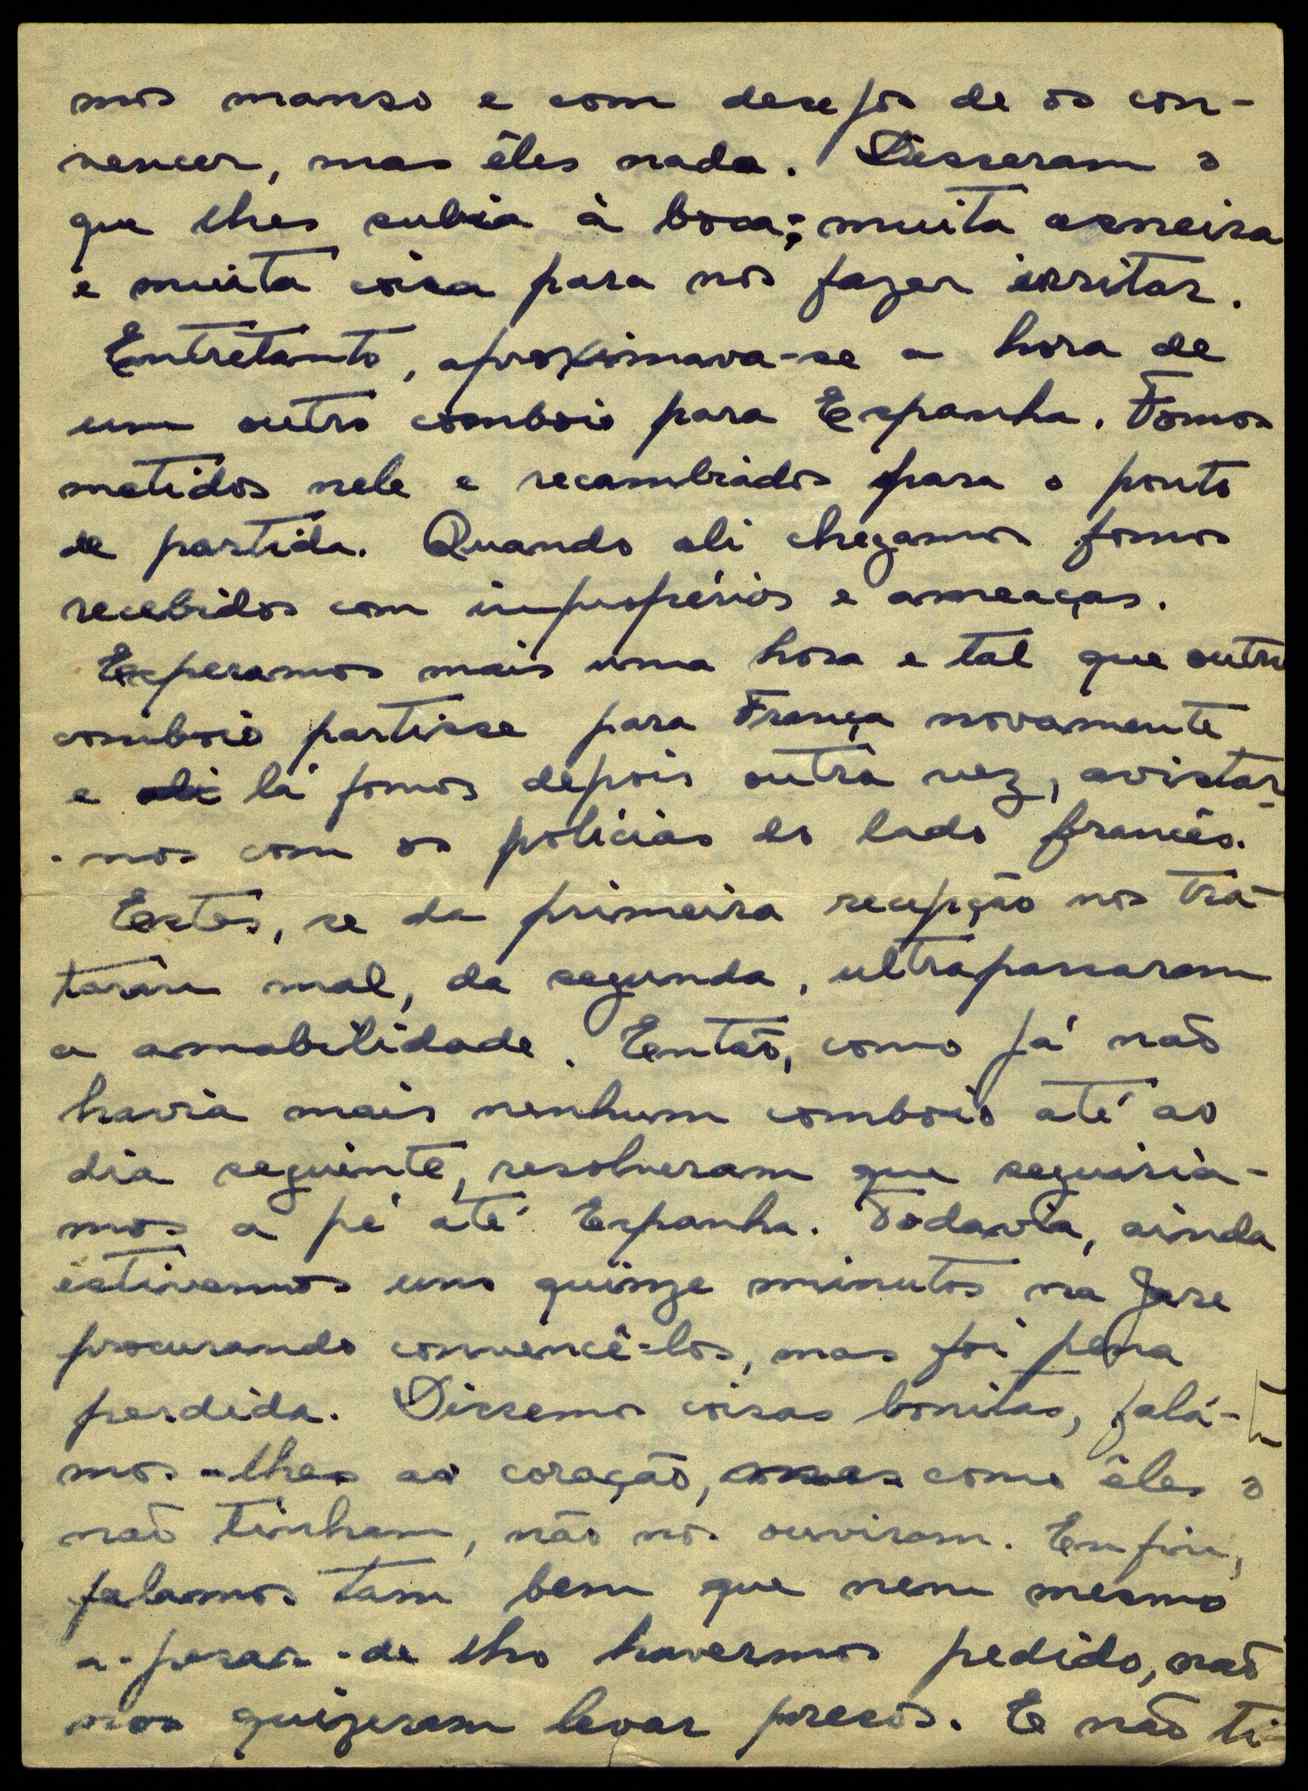 mos manso e com desejos de os con-
vencer, mas êles nada. Disseram o
que lhes subia à boca; muita asneira
e muita coisa para nos fazer irritar.
Entretanto, aproximava-se a hora de
um outro comboio para Espanha. Fomos
metidos nele e recambiados para o ponto
de partida. Quando ali chegamos fomos
recebidos com impropérios e ameaças.
Esperamos mais uma hora e tal que outro
comboio partisse para França novamente
e ali lá fomos depois outra vez, avistar-
-nos com os polícias do lado francês.
Estes, se da primeira recepção nos tra-
taram mal, da segunda, ultrapassaram
a amabilidade. Então, como já não
havia mais nenhum comboio até ao
dia seguinte, resolveram que seguiria-
mos a pé até Espanha. Todavia, ainda
estivemos uns quinze minutos na Gare
procurando convencê-los, mas foi pena
perdida. Dissemos coisas bonitas, falá-
mos-lhes ao coração, mas como êles o
não tinham, não nos ouviram. Enfim,
falamos tam bem que nem mesmo
a-pesar-de lho havermos pedido, não
nos quizeram levar presos. E não ti-